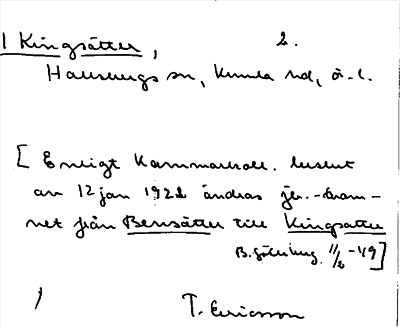 1 Kingsätter, 2.
Hallsbergs sn, Kumla hd, ö.l.
[Enligt Kammarkoll. beslut
av 12 jan 1922 ändras jb.-nam-
net från Bensätter till Kingsätter
B. Göteborg 11/2 -49]
T. Ericsson